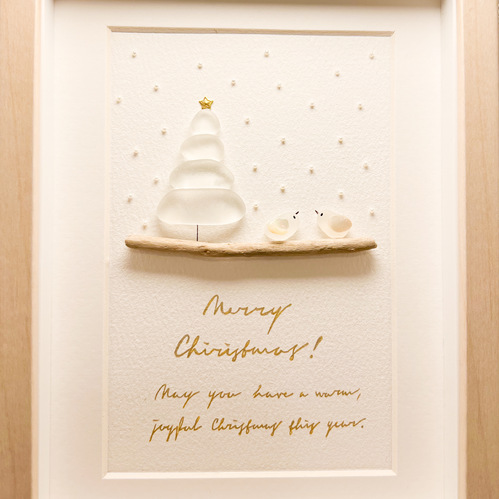 Merry
Chirisbmas!
May you have a warm,
joyful Christmas this year.